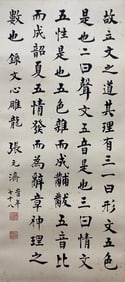 故立文之道其理有三一曰形文五色
是也二曰聲文五音是也三曰情文
五性是也五色雜而成黼黻五音比
而成韶夏五情發而為辭章神理之
數也 錄文心雕龍 張元濟 旹年七十八